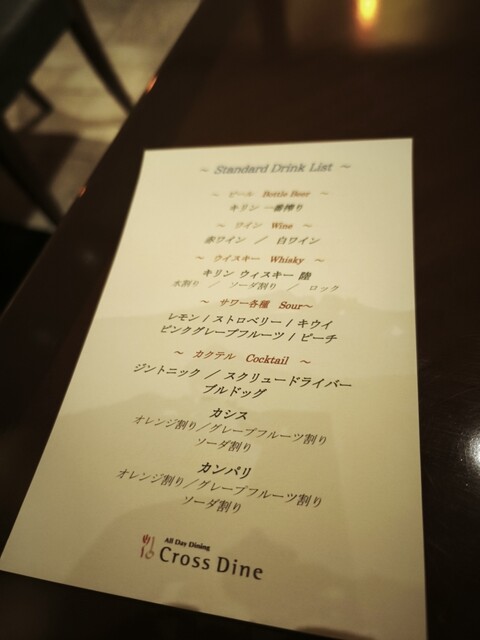 ～ Standard Drink List ～
～ ビール Bottle Beer ～
キリン 一番搾り
～ ワイン Wine ～
赤ワイン ／ 白ワイン
～ ウイスキー Whisky ～
キリン ウィスキー 陸
水割り ／ ソーダ割り ／ ロック
～ サワー各種 Sour～
レモン / ストロベリー / キウイ
ピンクグレープフルーツ / ピーチ
～ カクテル Cocktail ～
ジントニック ／ スクリュードライバー
ブルドッグ
カシス
オレンジ割り／グレープフルーツ割り
ソーダ割り
カンパリ
オレンジ割り／グレープフルーツ割り
ソーダ割り
All Day Dining
Cross Dine